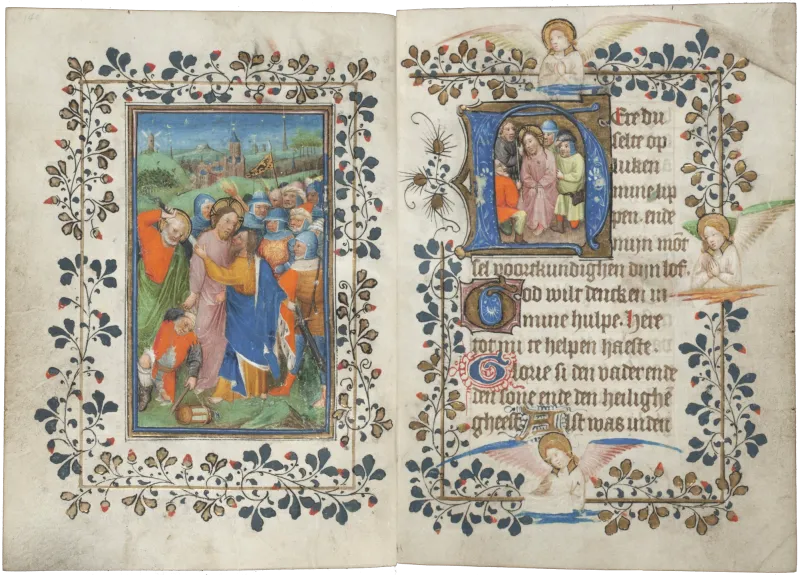 HEre du
selte op
luken
mine lip
pen ende
mijn mōt
sel voortkundighen dijn lof.
God wilt dencken in
mine hulpe. Here
tot mi te helpen haeste.
Glorie si den vader ende
den sone ende den heilighē
gheest Alst was in den